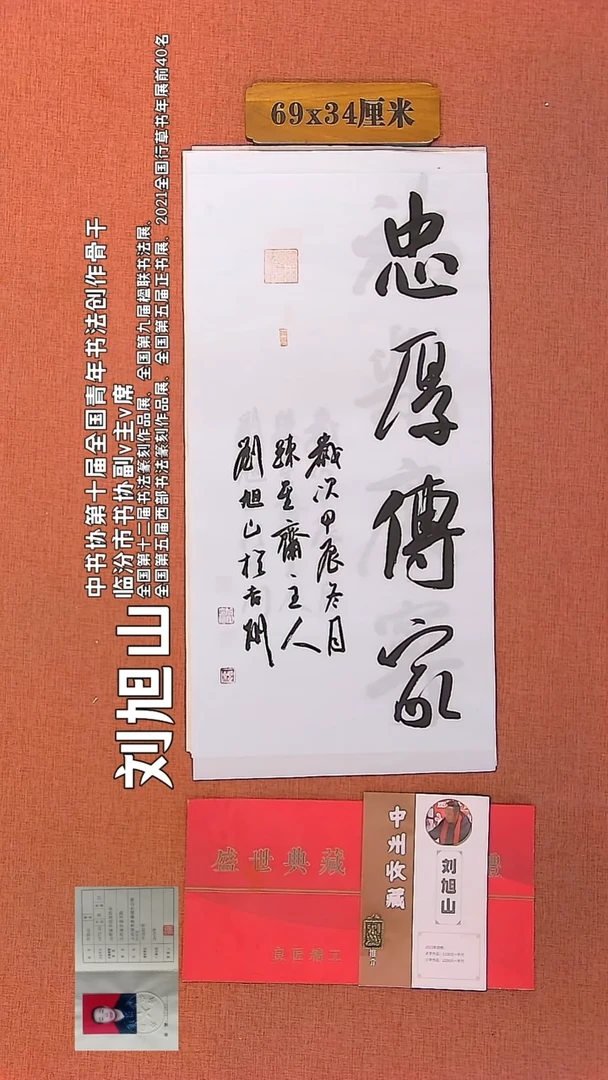 69x34厘米
忠厚傳家
歲次甲辰冬月
齋主人
劉旭山於古
中书协第十届全国青年书法创作骨干
临汾市书协副v主v席
全国第十二届书法篆刻作品展、全国第九届楹联书法展、
全国第五届西部书法篆刻作品展、全国第五届正书展、2021全国行草书年展前40名
刘旭山
盛世典藏
良匠精工
中州收藏
推介
刘旭山
藏